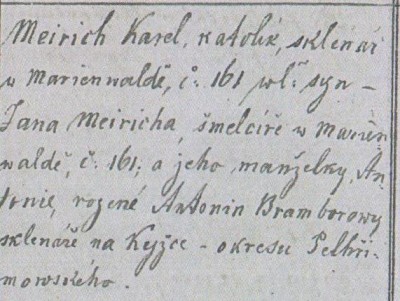 Meirich Karel, katolík, sklenář
w Marienwaldě, č: 161 wl: syn -
Jana Meiricha, šmelcíře w Marien
waldě, č: 161; a jeho manželky, An
tonie, rozené Antonin Bramborowy
sklenáře na Kyjce - okresu Pelhři-
mowského.